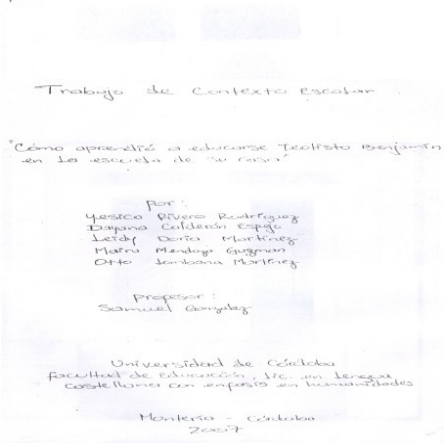 Trabajo de Contexto escolar
"Cómo aprendió a educarse Teolisto Benjamín
en la escuela de su casa"
por :
Yesica Rivera Rodríguez
Dayana Calderón Espejo
Leidy Doria Martínez
Maira Mendoza Guzman
Otto Lombana Martínez
Profesor :
Samuel Gonzalez
Universidad de Córdoba
facultad de Educación, Lic. en Lengua
Castellana con enfasis en humanidades
Montería - Córdoba